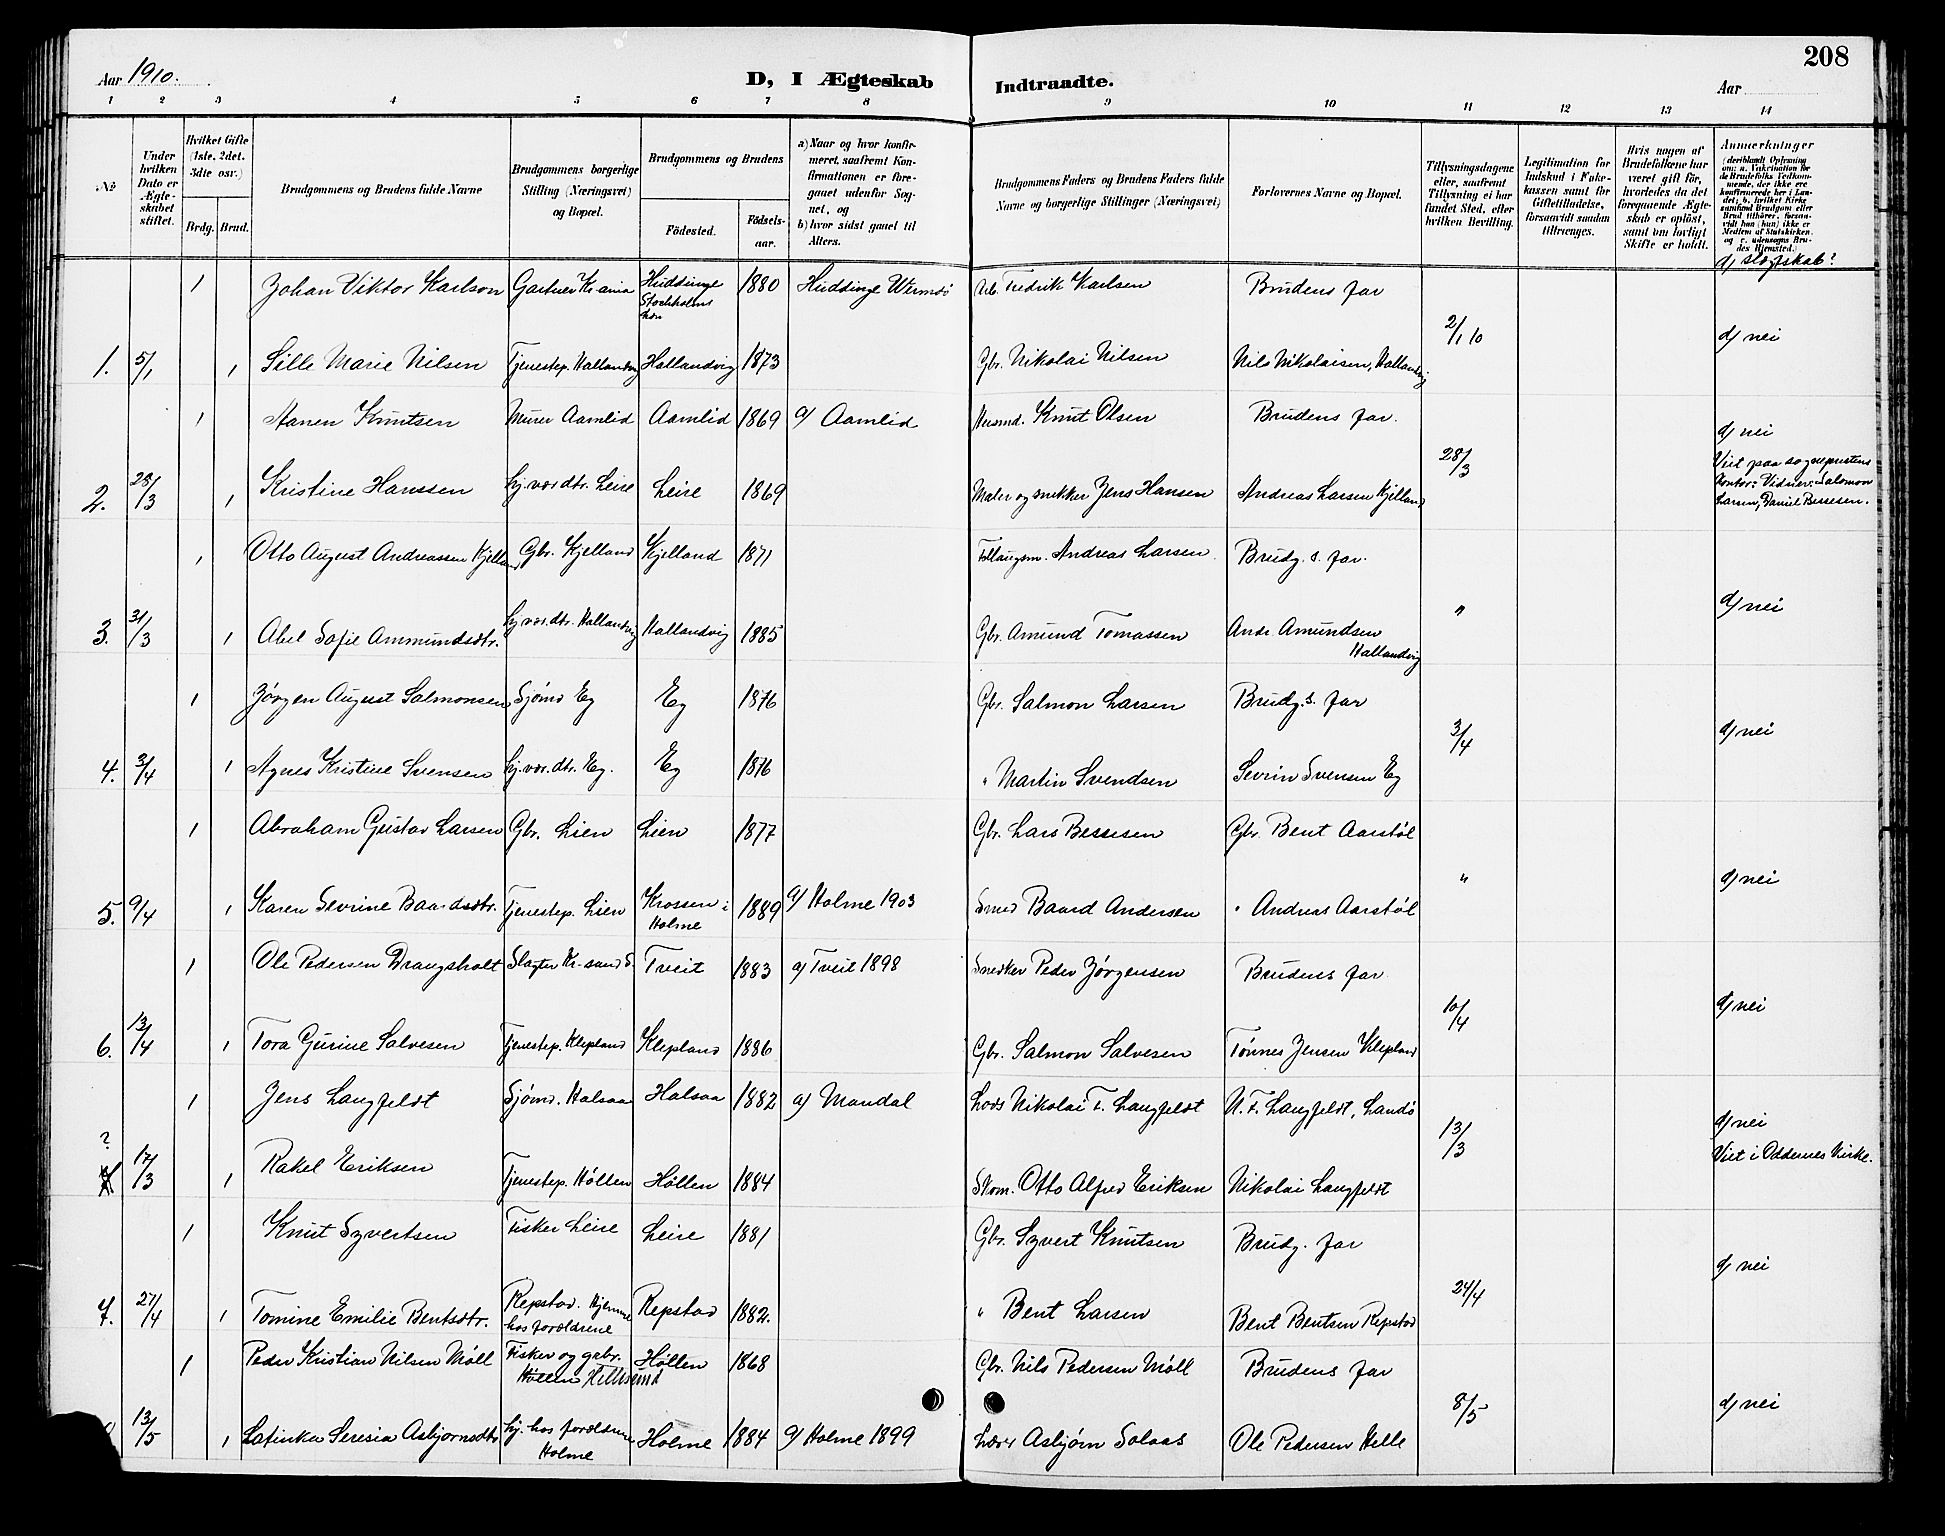 208
Aar 1910.
D, I Ægteskab Indtraadte.
Aar
1 2 3 4 5 6 7 8 9 10 11 12 13 14
№
Under hvilken Dato er Ægteskabet stiftet.
Hvilket Gifte (1ste, 2det, 3die osv.)
Brdg. Brud.
Brudgommens og Brudens fulde Navne
Brudgommens borgerlige Stilling (Næringsvei) og Bopæl.
Brudgommens og Brudens
Fødested.
Fødselsaar.
a) Naar og hvor konfirmeret, saafremt Konfirmationen er foregaaet udenfor Sognet, og
b) hvor sidst gaaet til Alters.
Brudgommens Faders og Brudens Faders fulde Navne og borgerlige Stillinger (Næringsvei)
Forlovernes Navne og Bopæl.
Tillysningsdagene eller, saafremt Tillysning ei har fundet Sted, efter hvilken Bevilling.
Legitimation for Indskud i Enkekassen samt for Giftetilladelse, forsaavidt saadan tiltrænges.
Hvis nogen af Brudefolkene har været gift før, hvorledes da det foregaaende Ægteskab er opløst, samt om lovligt Skifte er holdt.
Anmerkninger (deriblandt Oplysning om: a. Vakcination for de Brudefolks Vedkommende, der ikke ere konfirmerede her i Landet; b. hvilket Kirkesamfund Brudgom eller Brud tilhører, forsaavidt han (hun) ikke er Medlem af Statskirken, og c. udensogns Brudes Hjemsted.)
d) slegtskab?
1 Johan Viktor Karlson Gartner Kr.ania Huddinge Stockholms Læn 1880 Huddinge Wermdö Arb. Fredrik Karlsen Brudens far
2/1 10
1. 5/1 1 Sille Marie Nilsen Tjenestep. Hallandvig Hallandvig 1873 Gbr. Nikolai Nilsen Nils Nikolaisen, Hallandvig d) nei
1 Aanen Knutsen Murer Aamlid Aamlid 1869 a) Aamlid Husmd. Knut Olsen Brudens far.
28/3 d) nei
2. 28/3 1 Kristine Hanssen hj.vær.dtr. Leire Leire 1869 Maler og snekker Jens Hansen Andreas Larsen Kjelland Viet paa sognepræstens kontor. Vidner: Salomon Larsen, Daniel Bessesen.
1 Otto August Andreassen Kjelland Gbr. Kjelland Kjelland 1871 Andreas Larsen Brudg.s. far.
3. 31/3 1 Abel Sofie Ammundsdtr. hj.vær.dtr. Hallandvig Hallandvig 1885 Gbr. Amund Tomassen Andr. Amundsen Hallandvig " d) nei
1 Jørgen August Salmonsen Sjømd Eg Eg 1876 Gbr. Salmon Larsen Brudg.s. far
3/4 d) nei
4. 3/4 1 Agnes Kristine Svensen hj.vær.dtr. Eg. Eg 1876 " Martin Svendsen Sevrin Svensen Eg
1 Abraham Gustav Larsen Gbr. Lien Lien 1877 Gbr. Lars Bessesen Gbr. Bent Aarstøl
" d) nei
5. 9/4 1 Karen Sevrine Baardsdtr. Tjenestep. Lien Krossen i Holme 1889 a) Holme 1903 Smed Baard Andersen " Andreas Aarstøl
1 Ole Pedersen Drangsholt Slagter Kr.sand S. Tveit 1883 a) Tveit 1898 Snedker Peder Jørgensen Brudens far
10/4 d) nei
6. 13/4 1 Tora Gurine Salvesen Tjenestep. Klepland Klepland 1886 Gbr. Salmon Salvesen Tønnes Jensen Klepland
1 Jens Langfeldt Sjømd. Halsaa Halsaa 1882 a) Mandal Lods Nikolai F. Langfeldt N. F. Langfeldt, Landø
? 13/3 d) nei
17/3 1 Rakel Eriksen Tjenestep. Høllen Høllen 1884 Skom. Otto Alfred Eriksen Nikolai Langfeldt Viet i Oddernes Kirke.
1 Knut Syvertsen Fisker Leire Leire 1881 Gbr. Syvert Knutsen Brudg. far
24/4 d) nei
7. 27/4 1 Tomine Emilie Bentsdtr. Repstad. Hjemme hos forældrene Repstad 1882. " Bent Larsen Bent Bentsen Repstad
1 Peder Kristian Nilsen Møll Fisker og gabr. Høllen Hellesund Høllen 1868 Gbr. Nils Pedersen Møll Brudens far
8/5 d) nei
13/5 1 Katinka Seresia Asbjørnsdtr hj. hos forældrene Holme Holme 1884 a) Holme 1899 Lærer Asbjørn Solaas Ole Pedersen Helle